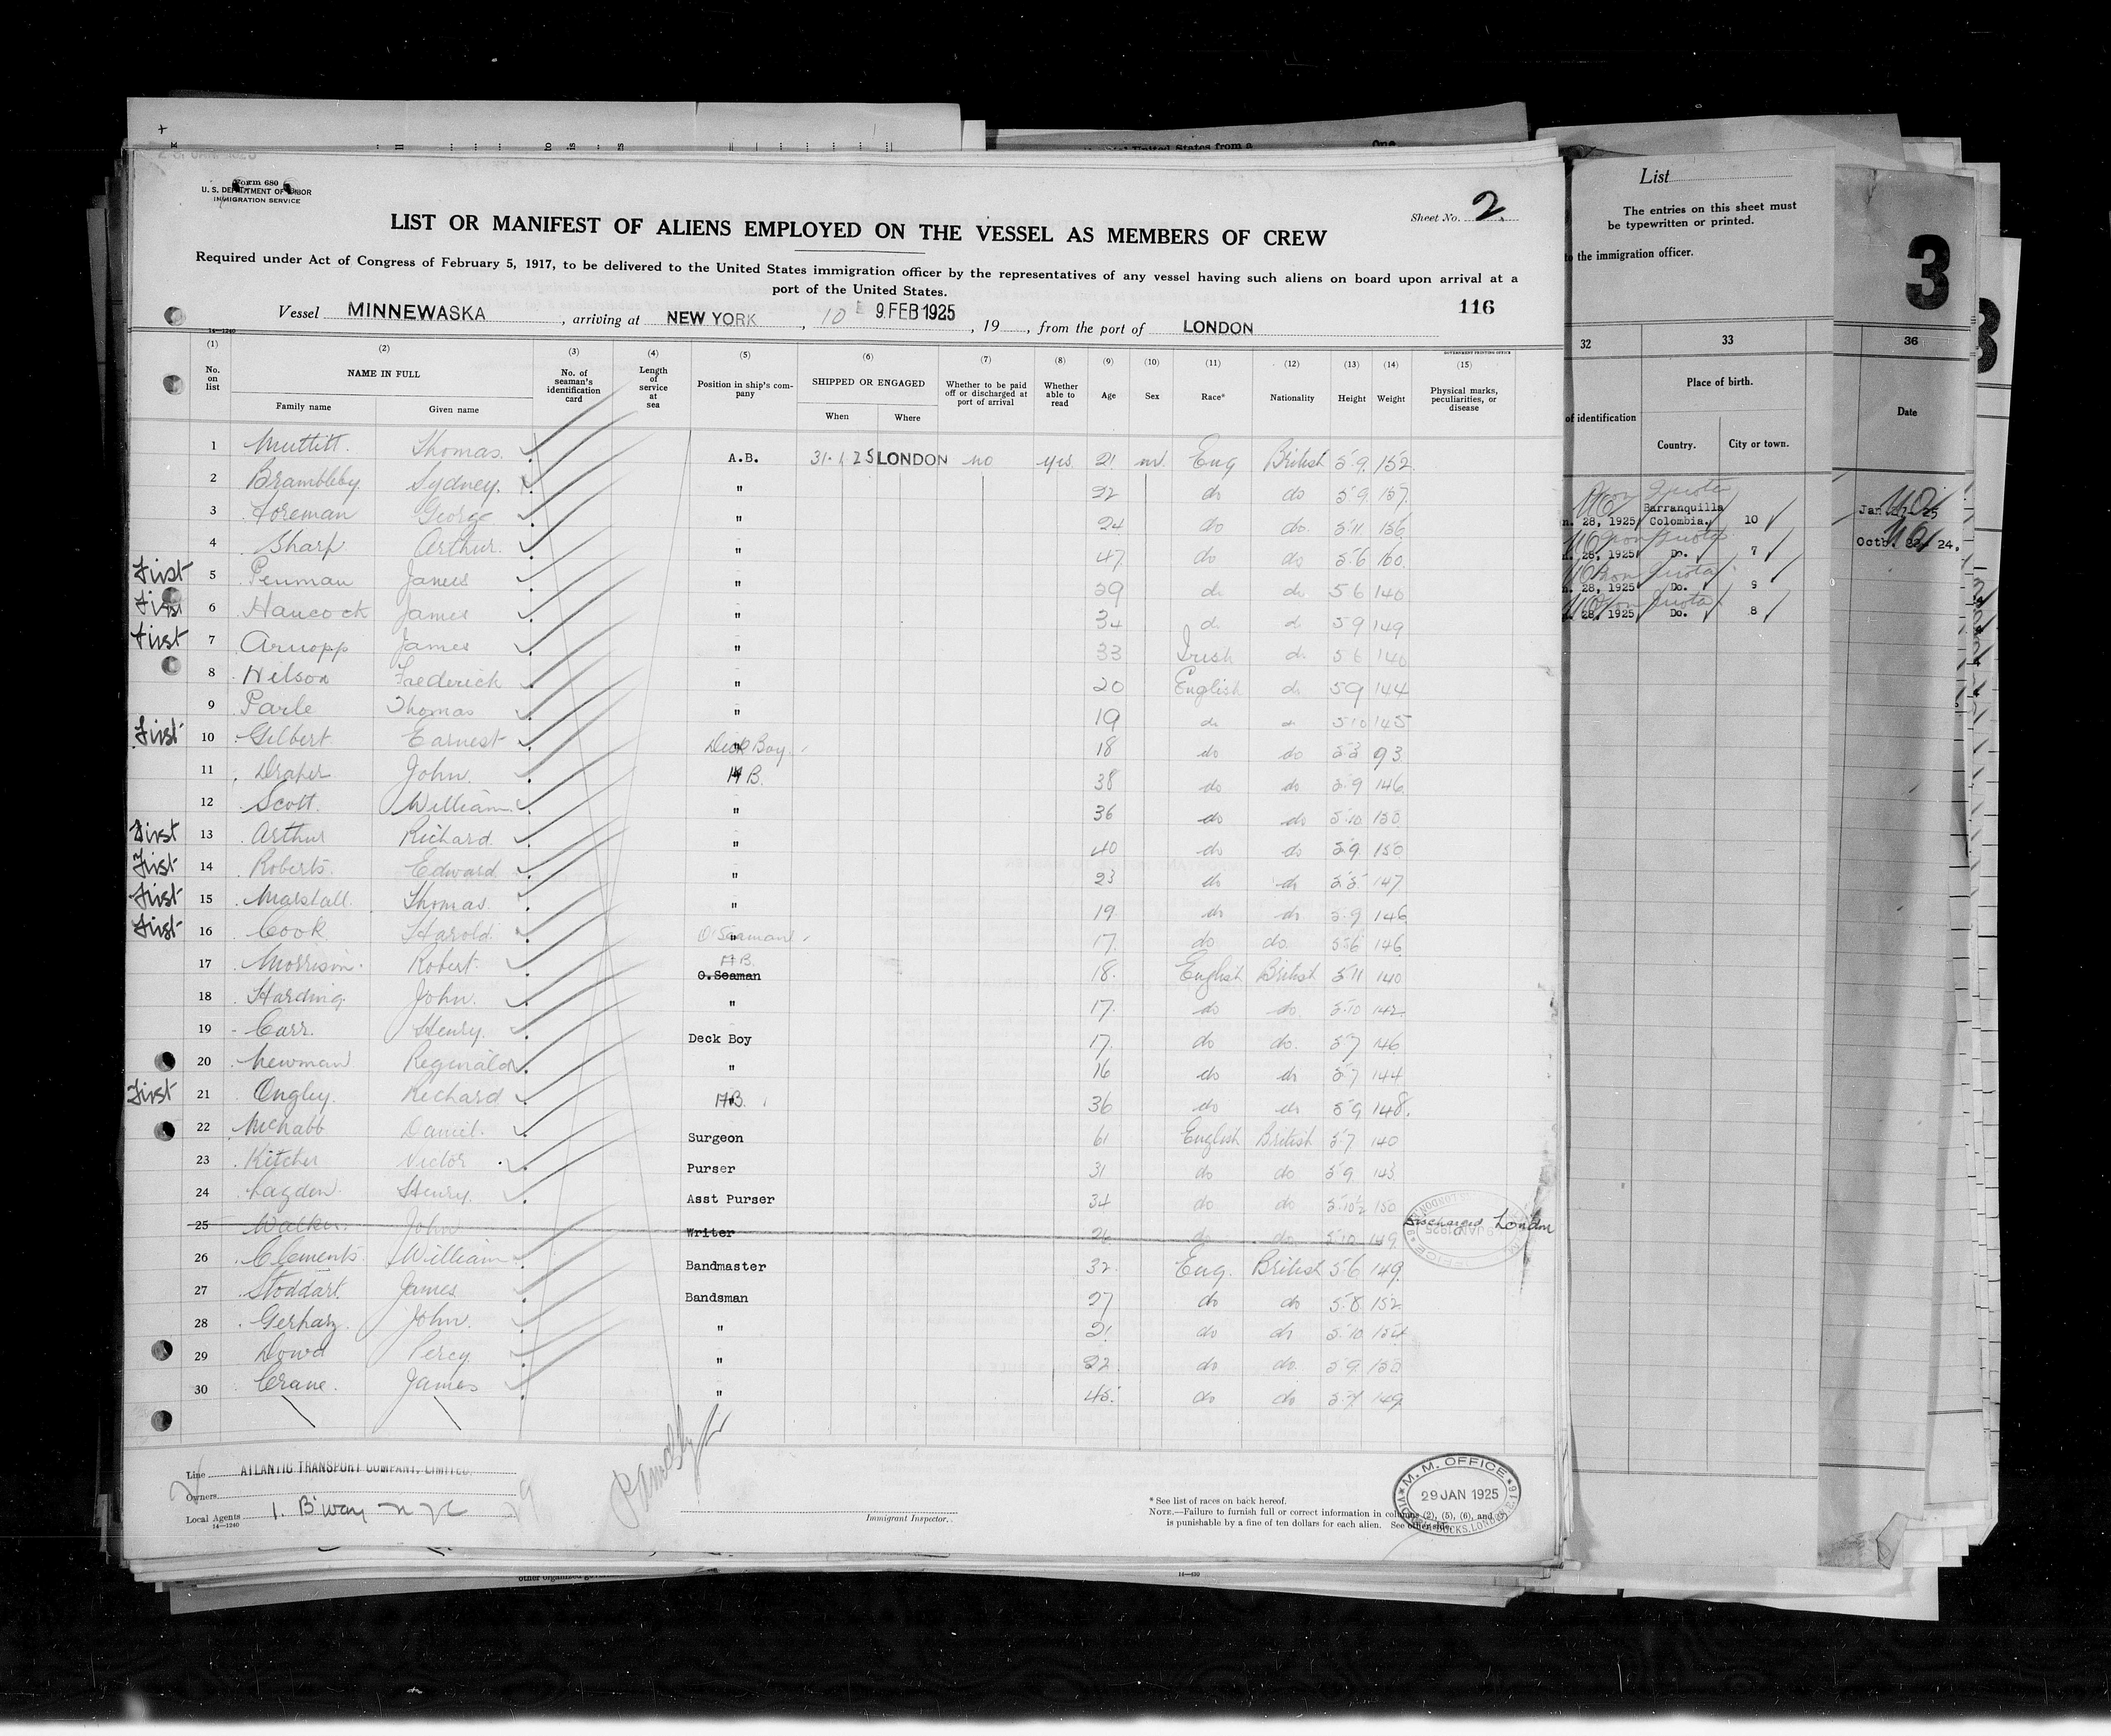 Form 680
U. S. DEPARTMENT OF LABOR
IMMIGRATION SERVICE
Sheet No. 2.
LIST OR MANIFEST OF ALIENS EMPLOYED ON THE VESSEL AS MEMBERS OF CREW
Required under Act of Congress of February 5, 1917, to be delivered to the United States immigration officer by the representatives of any vessel having such aliens on board upon arrival at a
port of the United States.
116
Vessel MINNEWASKA, arriving at NEW YORK, 10 9 FEB 1925, 19, from the port of LONDON
14—1240
GOVERNMENT PRINTING OFFICE
(1) (2) (3) (4) (5) (6) (7) (8) (9) (10) (11) (12) (13) (14) (15)
No. on list
NAME IN FULL
Family name Given name
No. of seaman's identification card
Length of service at sea
Position in ship's company
SHIPPED OR ENGAGED
When Where
Whether to be paid off or discharged at port of arrival
Whether able to read
Age Sex Race* Nationality Height Weight
Physical marks, peculiarities, or disease
1 Muttitt. Thomas. A.B. 31.1.25 LONDON no yes 21 m. Eng British 5.9. 152.
2 Brambleby. Sydney. " 22 do do 5 9 157.
3 Foreman George " 24 do do. 5.11. 156.
4 Sharp Arthur. " 47. do do 5.6 160.
First 5 Penman James " 29 do do 5 6 140
First 6 Hancock James " 34 do do 5 9 149
First 7 Arnopp James " 33 Irish do 5 6 140
8 Wilson Frederick " 20 English do 5 9 144
9 Parle Thomas " 19 do do 5 10 145
First 10 Gilbert Earnest Deck Boy. 18 do do 5 3 93
11 Draper John. A B. 38 do do 5.9 146.
12 Scott. William. " 36 do do 5.10 150.
First 13 Arthur Richard. " 40 do do 5.9. 150
First 14 Roberts. Edward. " 23 do do 5.5 147
First 15 Marshall. Thomas. " 19 do do 5.9 146
First 16 Cook Harold. O'Seaman. 17. do do. 5.6 146.
17 Morrison. Robert. A B. O. Seaman 18. English British 5 11 140
18 Harding. John. " 17. do do. 5.10 142.
19 Carr. Henry. Deck Boy 17. do do. 5.7 146.
20 Newman Reginald. " 16 do do 5.7 144
First 21 Ongley. Richard A.B. 36 do do 5 9 148.
22 McNabb Daniel. Surgeon 61 English British 5.7 140
23 Kitcher Victor Purser 31 do do 5 9. 143
24 Lagden. Henry. Asst Purser 34 do do 5.10½ 150
25 Walker. John Writer 26 do do. 5.10 149 Discharged London
26 Clements. William Bandmaster 32. Eng. British 5.6 149.
27 Stoddart. James Bandsman 27 do do 5.8. 152
28 John. " 21 do do 5.10 154
29 Dowd Percy " 22. do do. 5 9. 150
30 Crane. James " 45. do do 5.7 149
Line ATLANTIC TRANSPORT COMPANY, LIMITED.
Owners
Local Agents 1. B'way N Y C
14—1240
Immigrant Inspector.
* See list of races on back hereof.
NOTE.—Failure to furnish full or correct information in columns (2), (5), (6), and (7)
is punishable by a fine of ten dollars for each alien. See other side.
M. M. OFFICE
29 JAN 1925
VICTORIA DOCKS. LONDON. E.16
List
The entries on this sheet must
be typewritten or printed.
to the immigration officer.
32 33
of identification
Place of birth.
Country. City or town.
Non Quota
Barranquilla
28, 1925 Colombia. 10
Non Quota
28, 1925 Do. 7
Non Quota
28, 1925 Do. 9
Non Quota
28, 1925 Do. 8
3
36
Date
24.
14—430